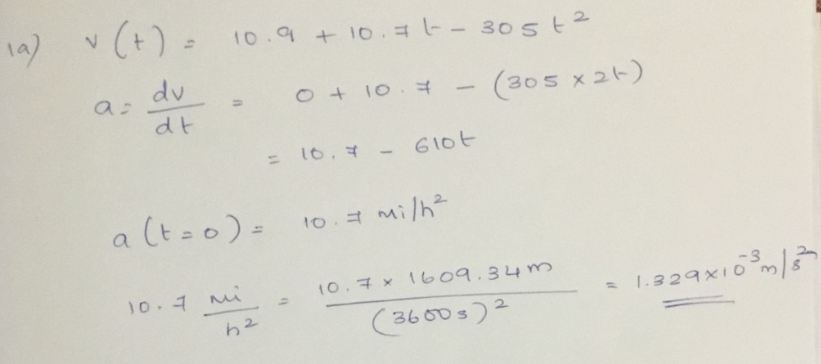 1a) v(t) = 10.9 + 10.7t - 305t²
a = dv/dt = 0 + 10.7 - (305 × 2t)
= 10.7 - 610t
a(t=0) = 10.7 mi/h²
10.7 mi/h² = 10.7 × 1609.34m / (3600s)² = 1.329×10⁻³ m/s²